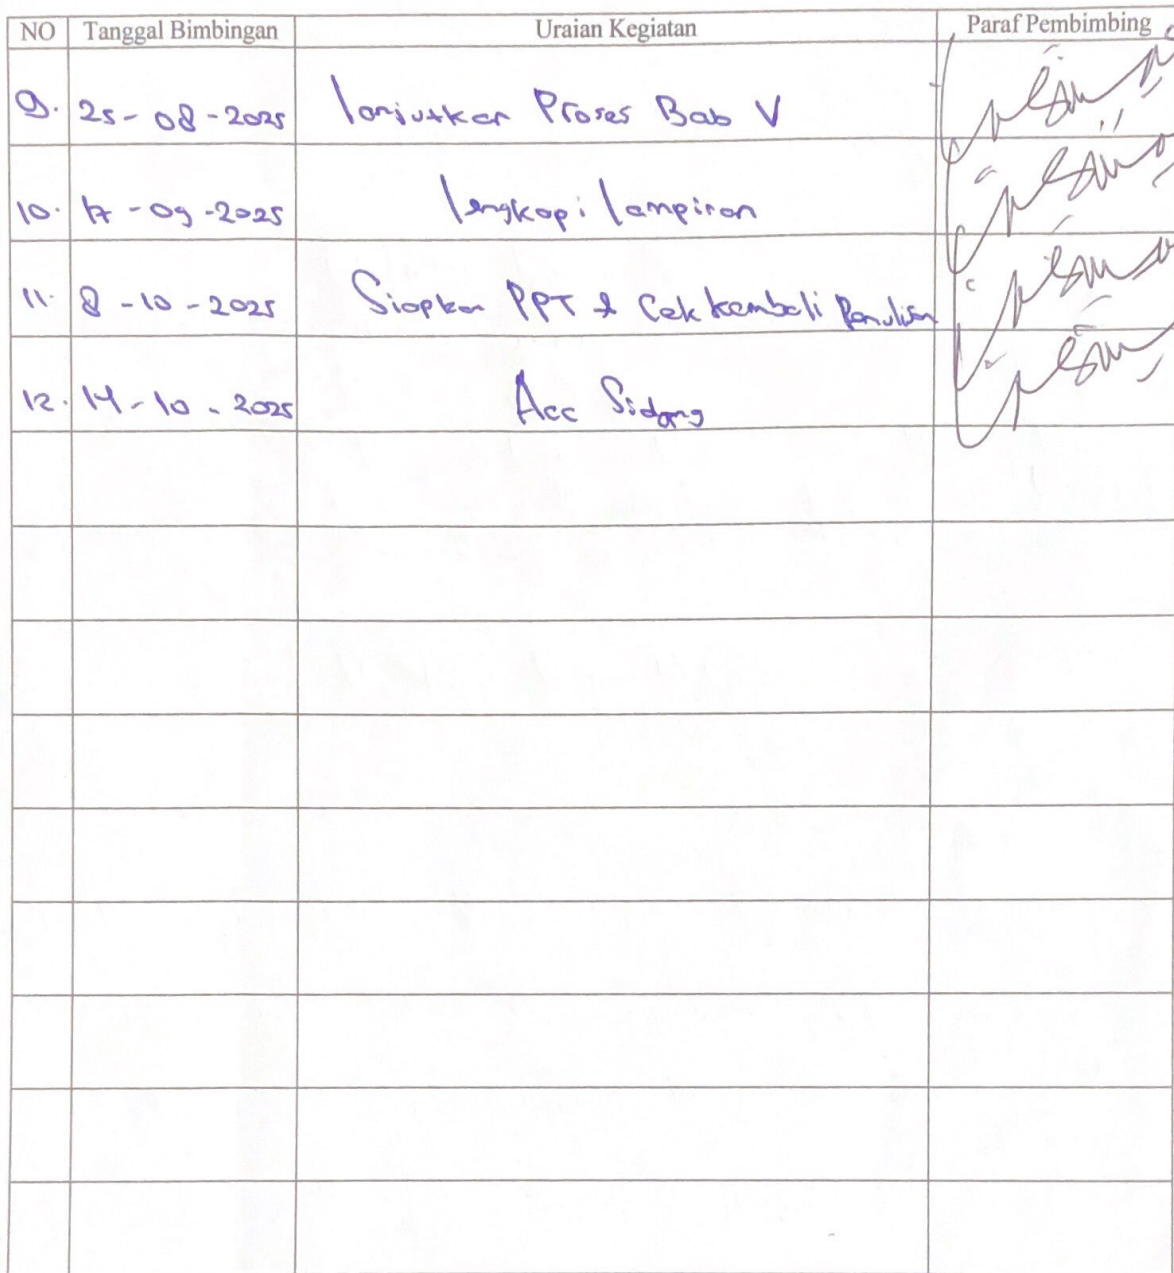 NO Tanggal Bimbingan Uraian Kegiatan Paraf Pembimbing
9. 25-08-2025 lanjutkan Proses Bab V
10. 17-09-2025 lengkapi lampiran
11. 8-10-2025 Siapkan PPT & Cek kembali Penulisan
12. 14-10-2025 Acc Sidang